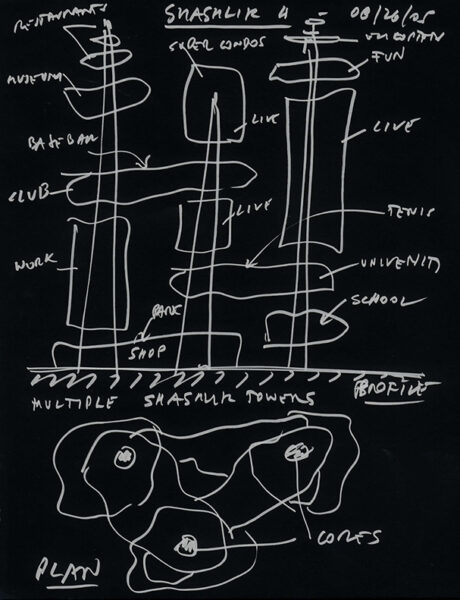 SHASHLIK 4
08/26/05
RESTAURANTS
SUPER CONDOS
FUN
MUSEUM
LIVE
LIVE
CLUB
LIVE
TENIS
WORK
UNIVERSITY
SCHOOL
PARK
SHOP
PROFILE
MULTIPLE SHASHLIK TOWERS
CORES
PLAN